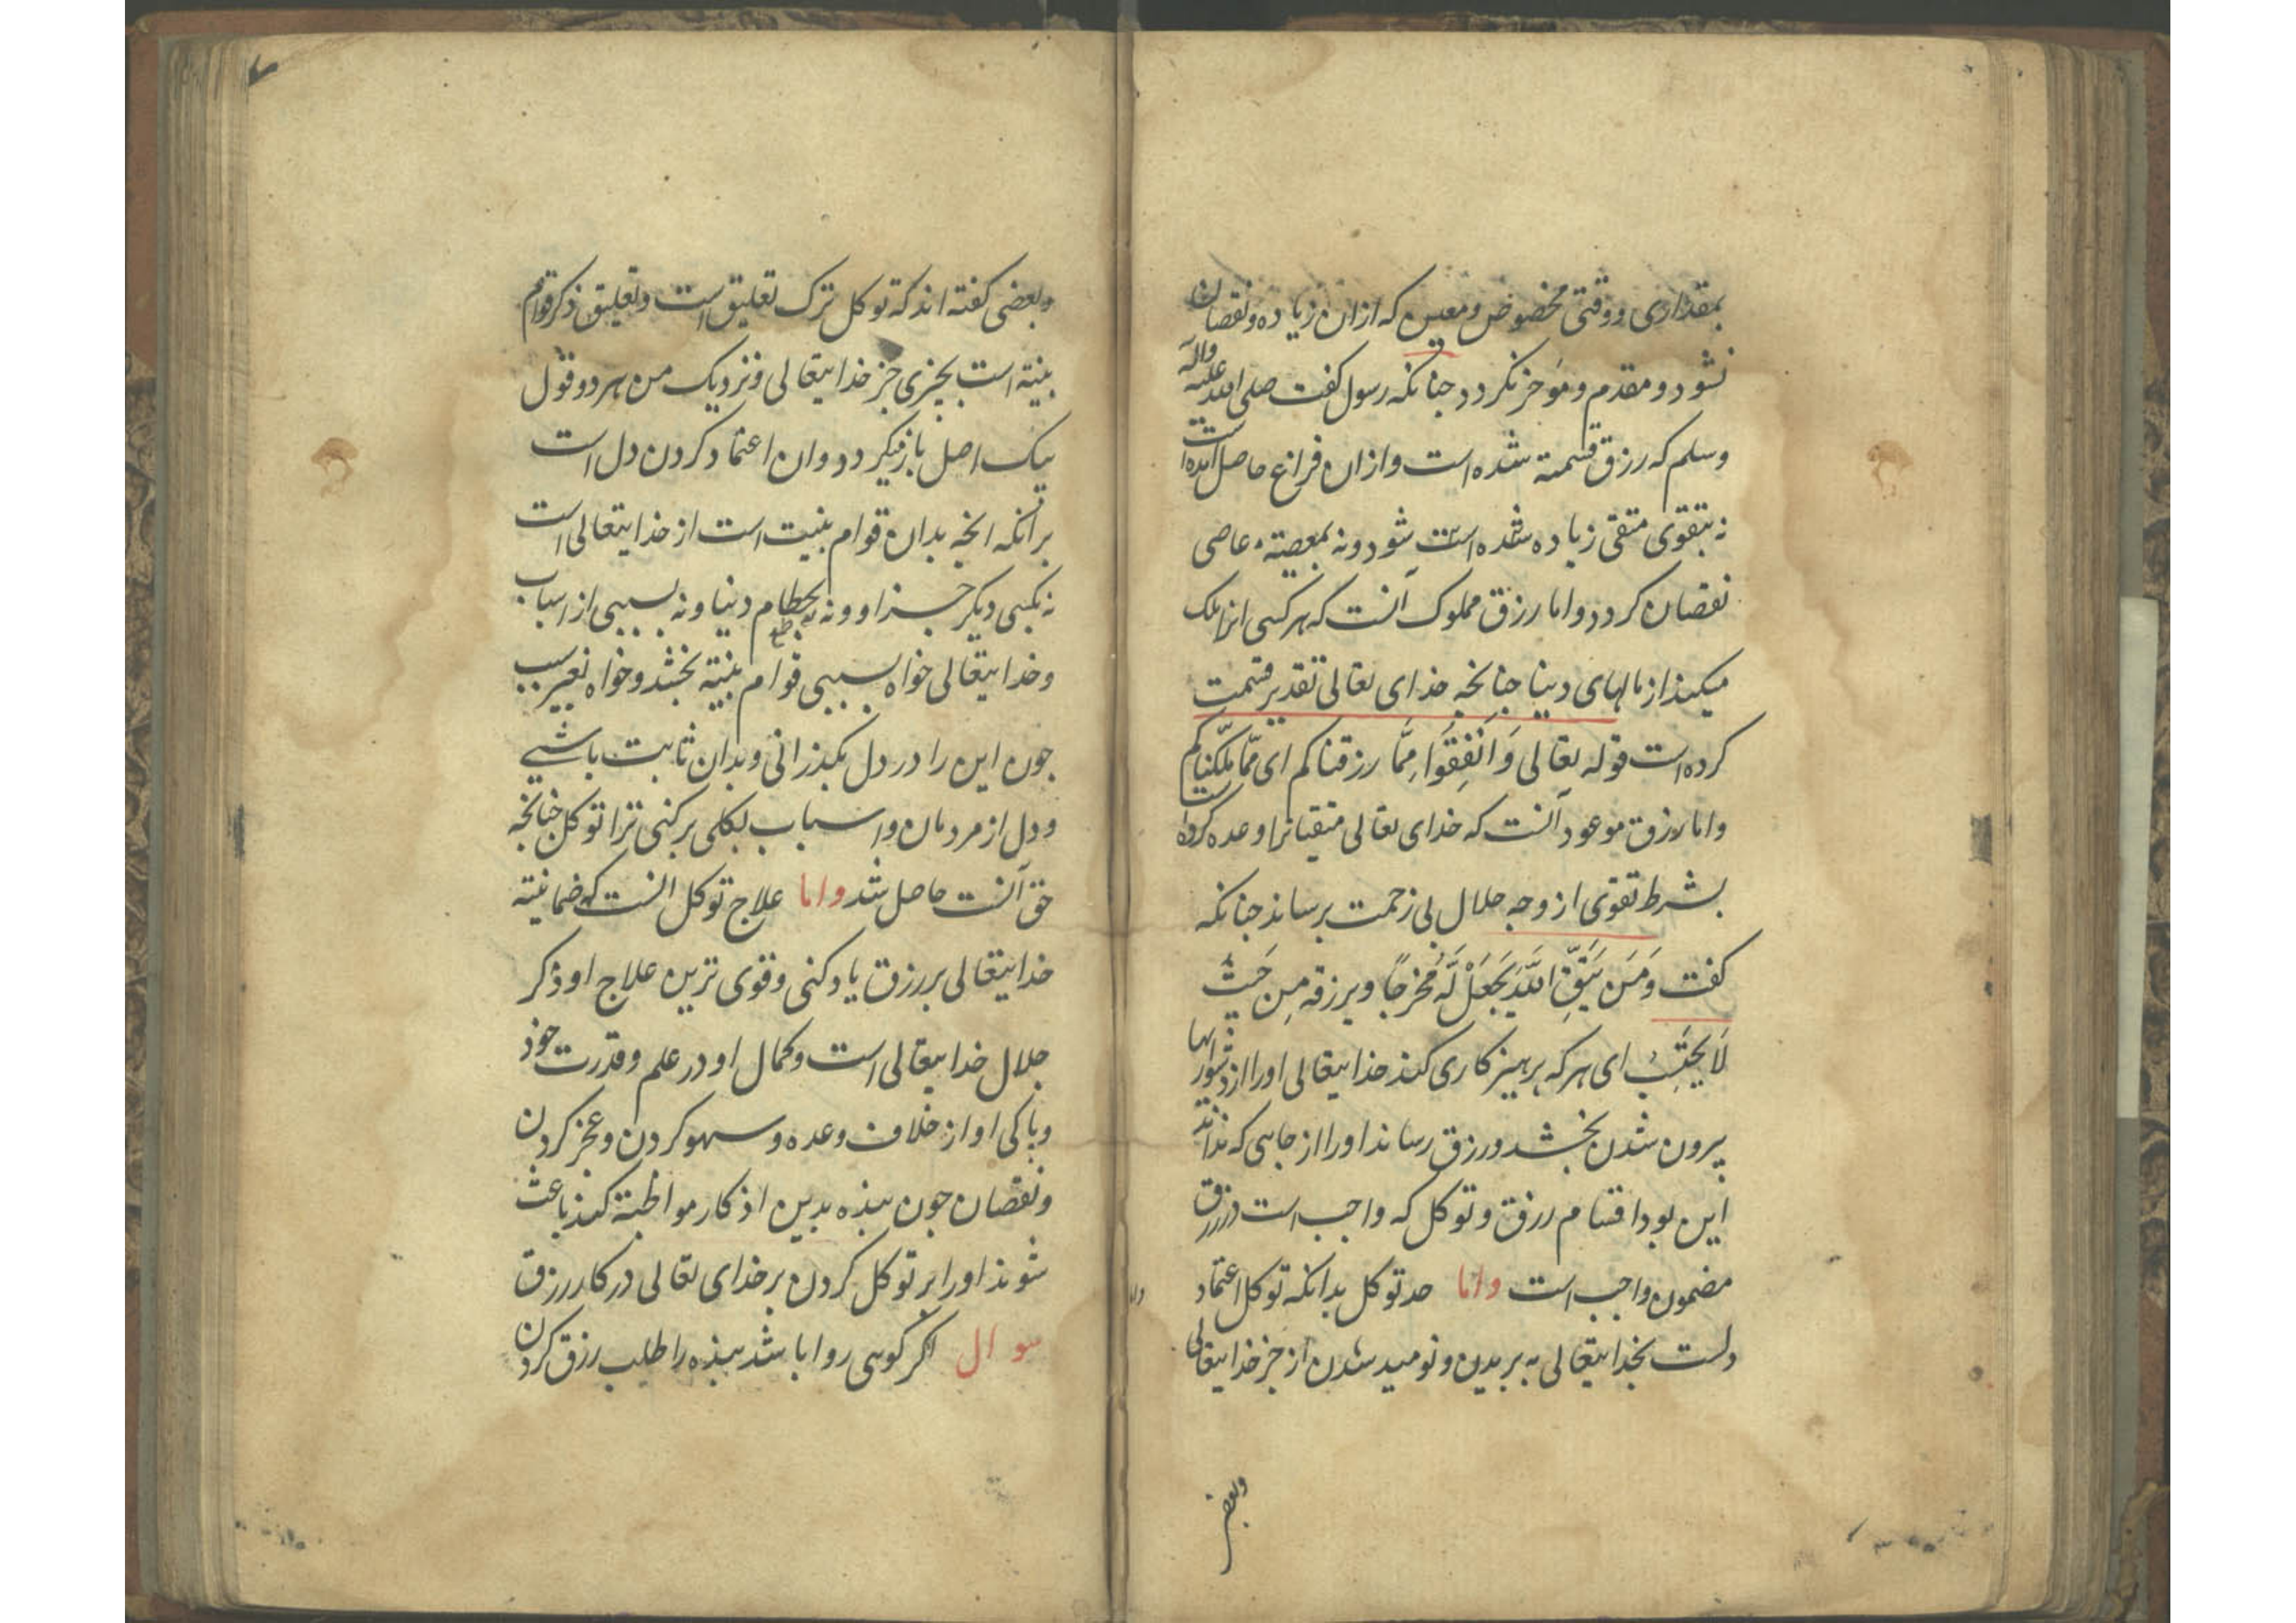 بمقداری و وقتی مخصوص و معین که ازان زیاده و نقصان
نشود و مقدم و موخر نکردد جنانکه رسول کفت صلی الله علیه واله
وسلم که رزق قسمته شده است وازان فراغ حاصل آمده است
نه بتقوی متقی زیاده شده است شود ونه بمعصیته عاصی
نقصان کردد واما رزق مملوک آنست که هرکسی انرا ملک
میکیند از مالهای دینا جنانجه خذای تعالی تقدیر قسمت
کرده است قوله تعالی وَاَنْفِقُوا مِمَّا رزقناکم ای مّما ملّکناکم
واما رزق موعود آنست که خدای تعالی متقیانرا وعده کرده است
بشرط تقوی از وجه حلال بی زحمت برساند جنانکه
کفت وَمَن یَتَّقِ اللّٰهَ یَجعَلْ لَّهُ مَخرجًا ویرزقه مِن حَیثُ
لَا یَحتَسِبُ ای هرکه پرهیزکاری کند خذایتعالی اورا از دشوارایها
بیرون شدن بخشد ورزق رساند اورا از جایی که نداند
این بود اقسام رزق و توکل که واجب است در رزق
مضمون واجب است واما حد توکل بدانکه توکل اعتماد
دلست بخذایتعالی به بریدن ونومید شدن از جز خذایتعالی
وبعضی
وبعضی کفته اند که توکل ترک تعلیق است وتعلیق ذکر قوام
بنیته است بجیزی جز خذایتعالی ونزدیک من هر دو قول
بیک اصل باز میکردد وان اعتماد کردن دل است
برانکه انجه بدان قوام بنیت است از خذایتعالی است
نه بکسی دیکر جز او ونه بحطام دینا ونه بسببی از اسباب
وخدایتعالی خواه بسببی قوام بنیته بخشد وخواه بغیر سبب
جون این را در دل بکذرانی وبدان ثابت باشی
ودل از مردمان واسباب بکلی برکنی ترا توکل جنانجه
حق آنست حاصل شد واما علاج توکل انست که ضمانیته
خدایتعالی بر رزق یاد کنی وقوی ترین علاج او ذکر
جلال خدایتعالی است وکمال او در علم وقدرت خود
وپاکی او از خلاف وعده وسهو کردن وعجز کردن
ونقصان جون بنده بدین اذکار مواظبته کند باعث
شوند اورا بر توکل کردن بر خدای تعالی در کار رزق
سوال اکر کویی روا باشد بنده را طلب رزق کردن